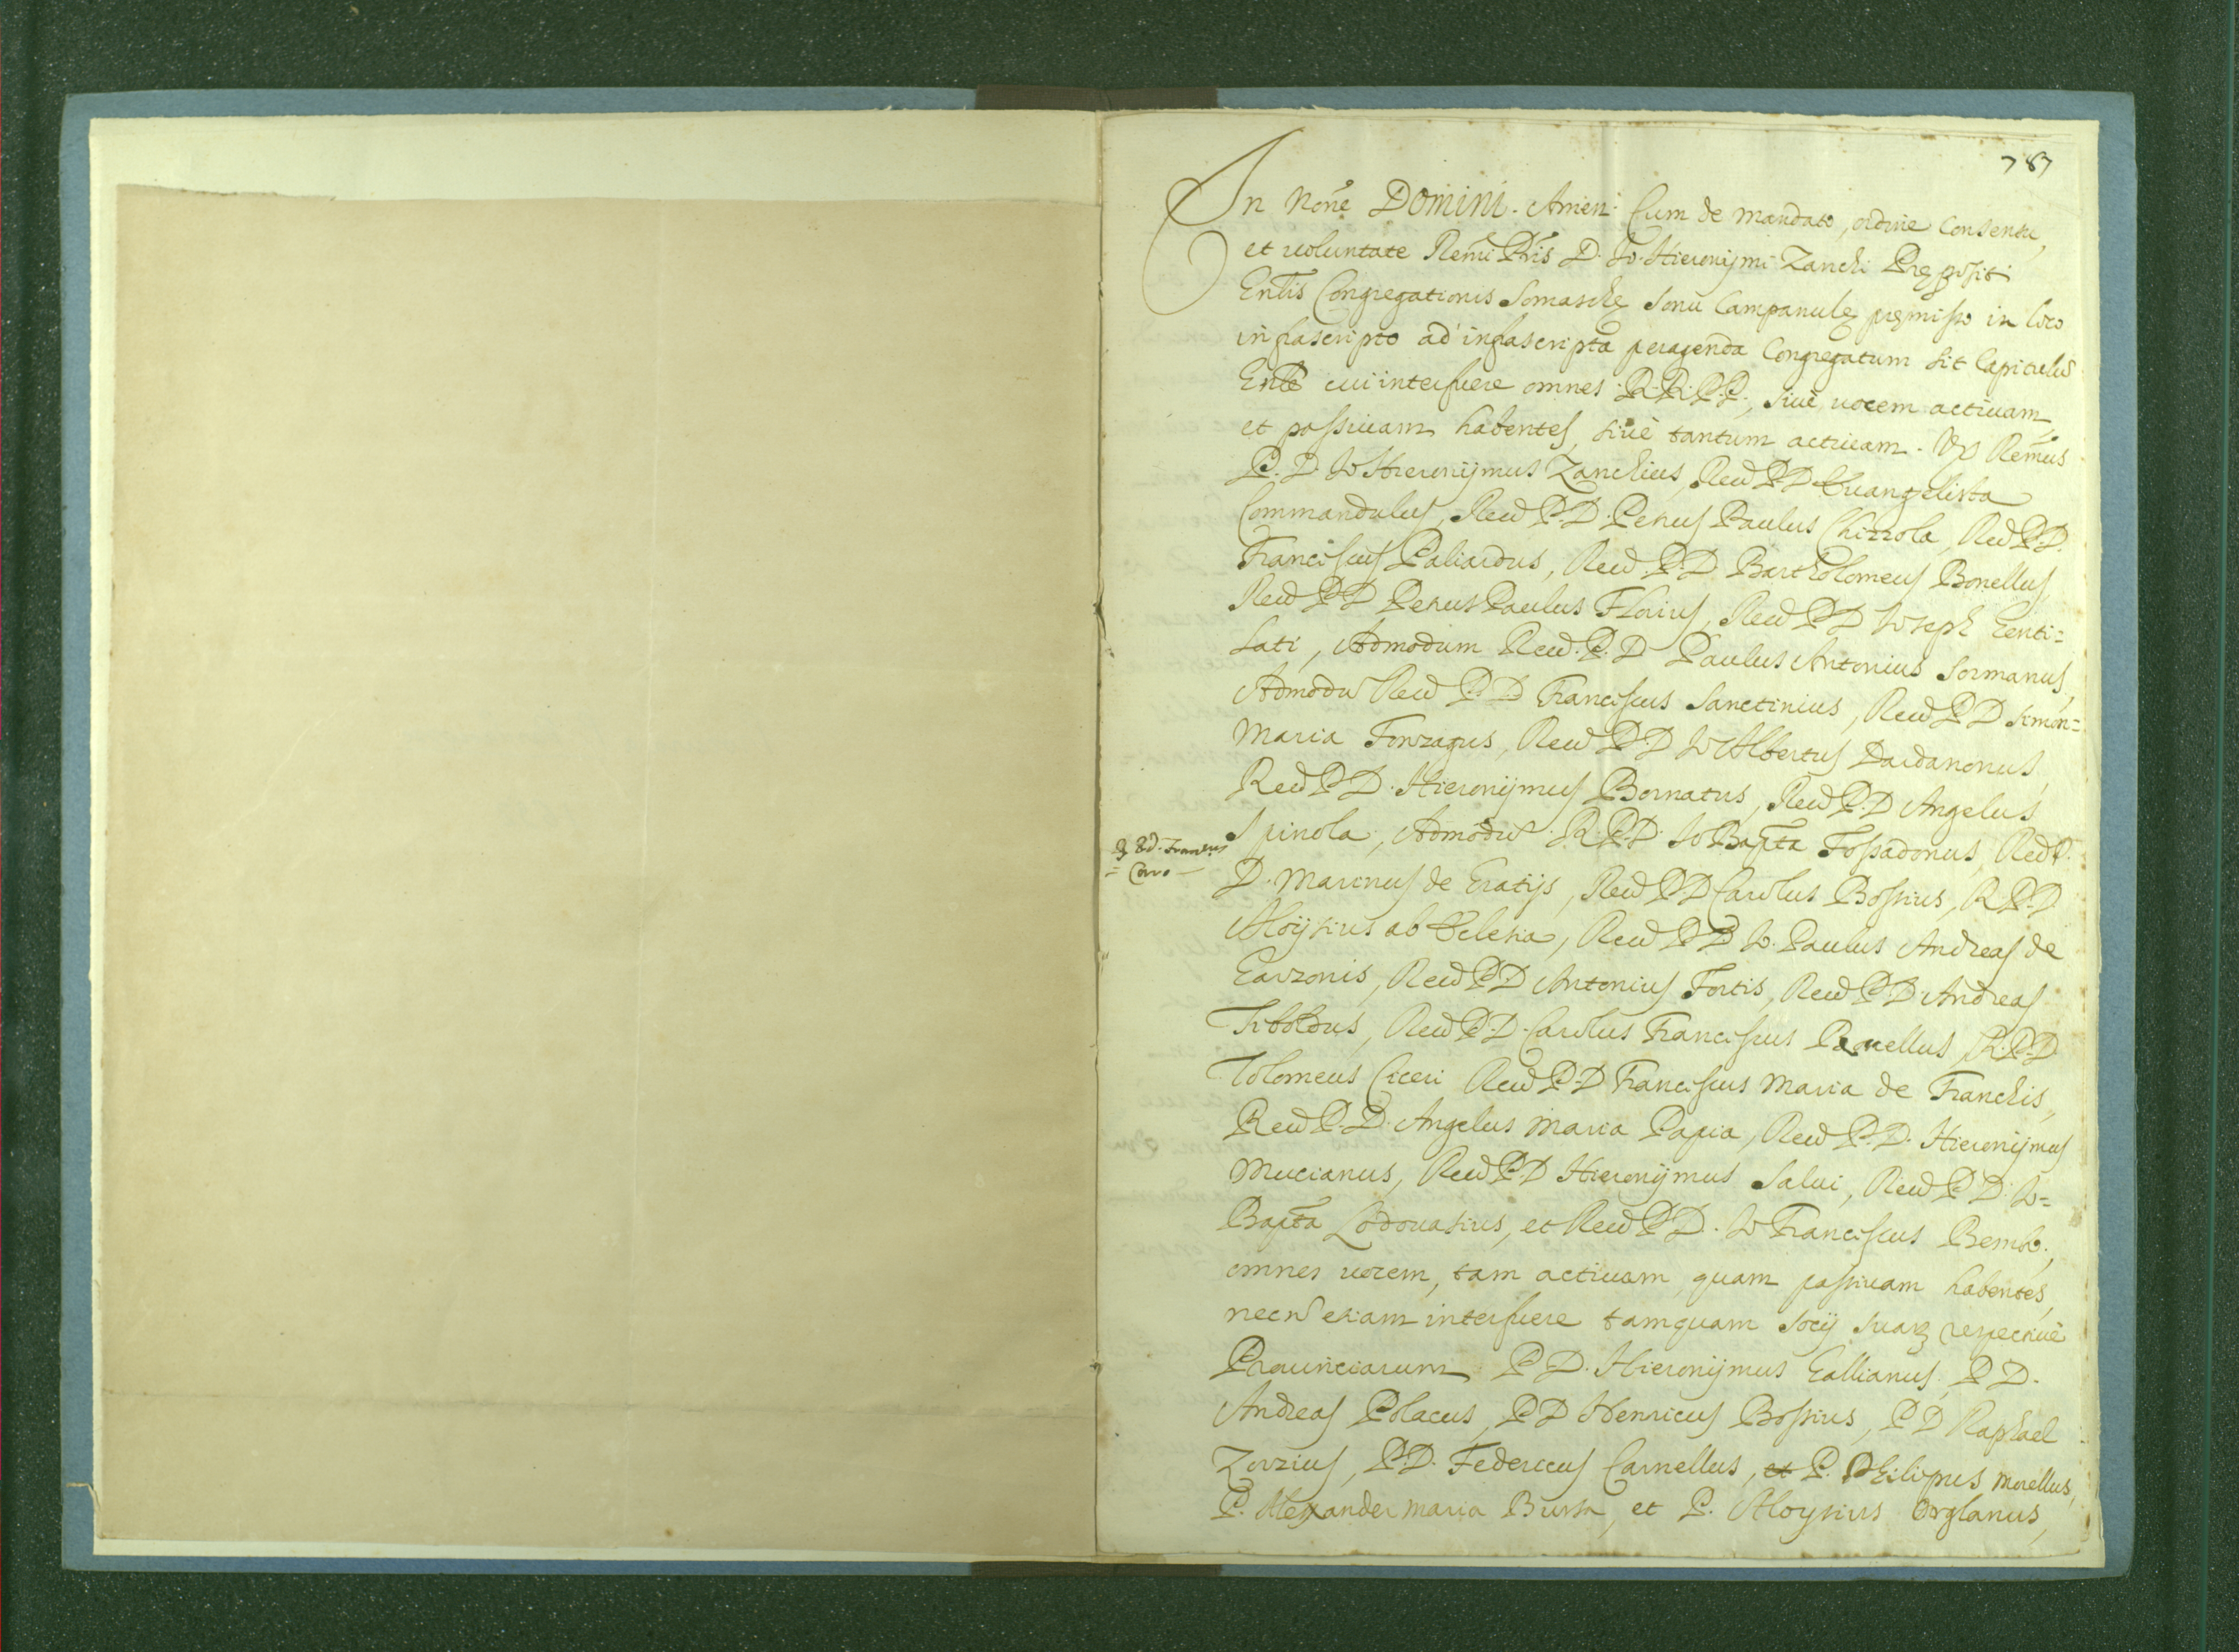 787
In Nõne Domini. Amen. Cum de mandato, ordine consensu,
et uoluntate Remi Pris D. Io. Hieronijmi Zanchi Prępositi
Gnlis Congregationis Somaschę sonu Campanulę pręmisso in loco
infrascripto ad infrascripta peragenda Congregatum sit Capitulũ
Gnle cui interfuere omnes R.R.P.P., siuè uocem actiuam,
et passiuam habentes, siuè tantum actiuam. Vz Remus
P. D. Io Hieronijmus Zanchius, Reud P.D Euangelista
Commandulus, Reud P.D. Petrus Paulus Chizzola, Reud P.D.
Franciscus Paliardus, Reud P.D Bartholomeus Bonellus,
Reud P D Petrus Paulus Florius, Reud P D Ioseph Genti=
lati, Admodum Reud. P. D Paulus Antonius Sormanus,
Admodũ Reud P. D Franciscus Sanctinius, Reud P D Simon=
Maria Fonzagus, Reud P.D Io Albertus Dardanonus,
Reud P D. Hieronijmus Bornatus, Reud P.D Angelus
Spinola, Admodũ R.P.D. Io Bapta Fossadonus, Reud P.
D. Marinus de Gratijs, Reud P D Carolus Bossius, R P.D
Aloysius ab, Reud P D Io. Paulus Andreas de
Garzonis, Reud P D Antonius Fortis, Reud P D Andreas
Tiboldus, Reud P.D. Carolus Franciscus, R.P.D
Tolomeus Ciceri Reud P.D Franciscus Maria de Franchis,
Reud P.D. Angelus Maria Papia, Reud P.D. Hieronijmus
Mucianus, Reud P.D Hieronijmus Salui, Reud P D Io=
Bapta Lodouasius, et Reud P D. Io Franciscus Bembo.
omnes uocem, tam actiuam, quam passiuam habentes,
necñ etiam interfuere tamquam socij suarꝫ respectiuè
Prouinciarum P D. Hieronijmus Gallianus, P D.
Andreas Polacus, P D Henricus Bossius, P D Raphael
Zorzius, P.D. Federicus Carnellus, et P. Philippus Morellus,
P. Alexander Maria Bursa, et P. Aloysius Orglanus,